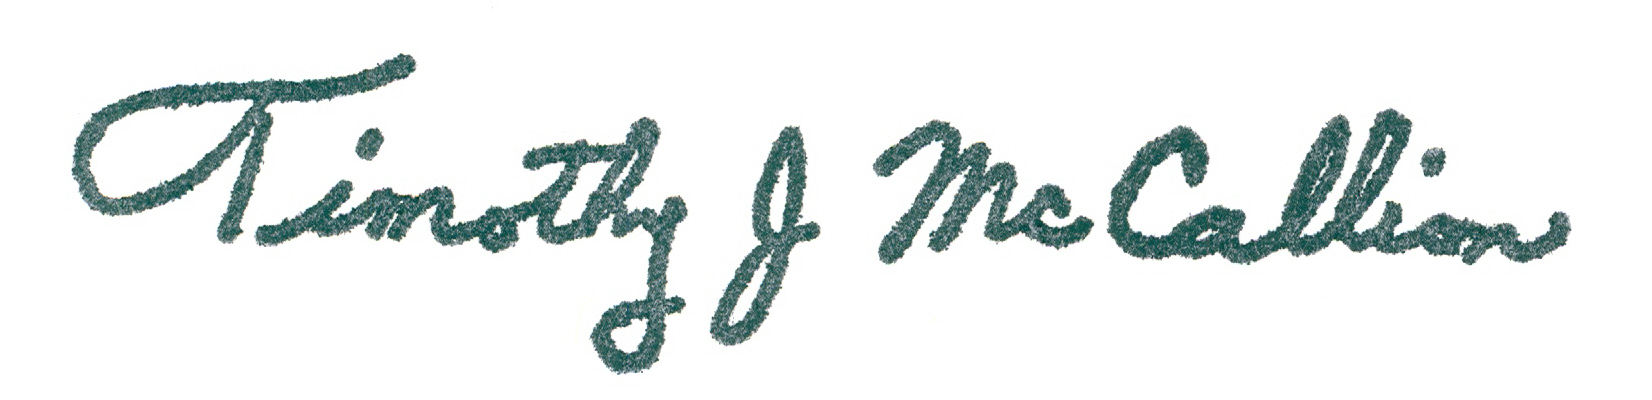 Timothy J McCallion